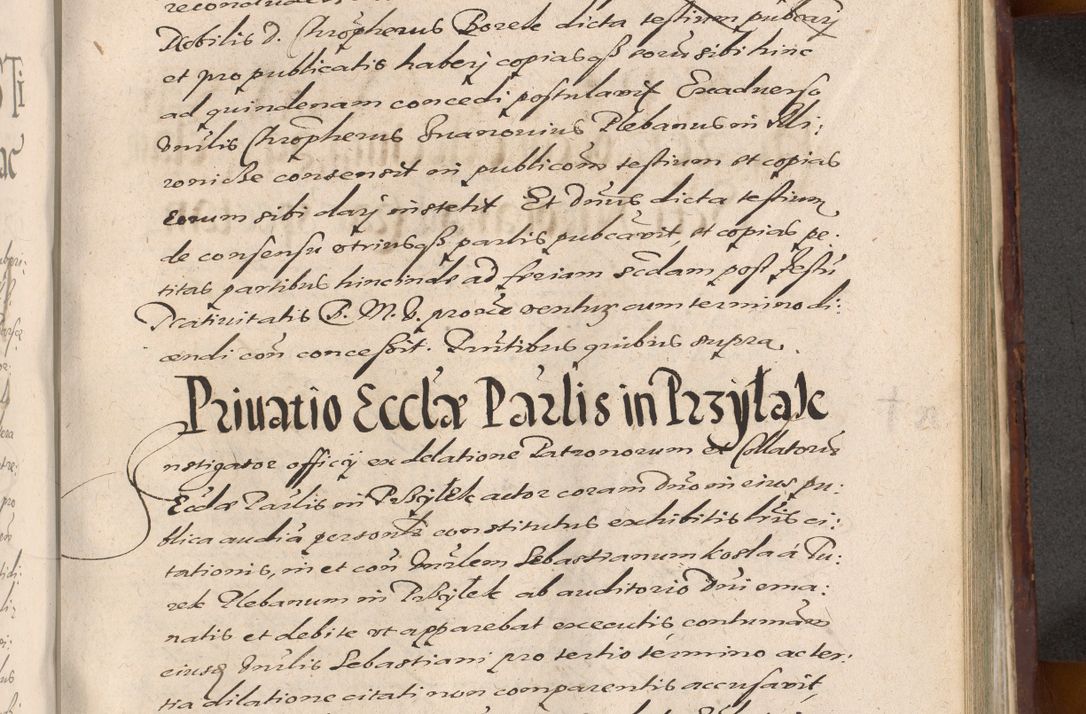 Nobilis D. Chrōpherus Borek dicta testium pubcarj
et pro publicatis haberj copiasqꝫ eorū sibi hinc
ad quindenam concedi postulavit Exadverso
Vnrlis Chrōpherus Gnanonius Plebanus in Mi:
ronicze consensit in publicoēm testium et copias
eorum sibi darj institit Et Dnus dicta testium
de consensu vtriusqꝫ partis pubcāvit, et copias pe:
titas partibus hincinde ad feriam scdam post Festū
Nativitatis B. M. V. proxe ventuꝝ cum termino di:
cendi con concessit. Pntibus quibus supra.
Privatio Ecclæ Parlis in Przyłęk
nstigator officij ex delatione Patronorum et Collatorū
Ecclæ Parlis in Przyłek actor coram Dno in eius pu:
blica audiā personlr constitutus exhibitis lris ci:
tationis, in et con Vnrlem Sebastianum Kosla á Tu:
rek Plebanum in Przyłek ab auditorio Dni ema:
natis et debite vt apparebat executis, contumām
eiusꝗ Vnrlis Sebastiani pro tertio termino ac ter:
tia dilatione citati non comparentis accusavit,